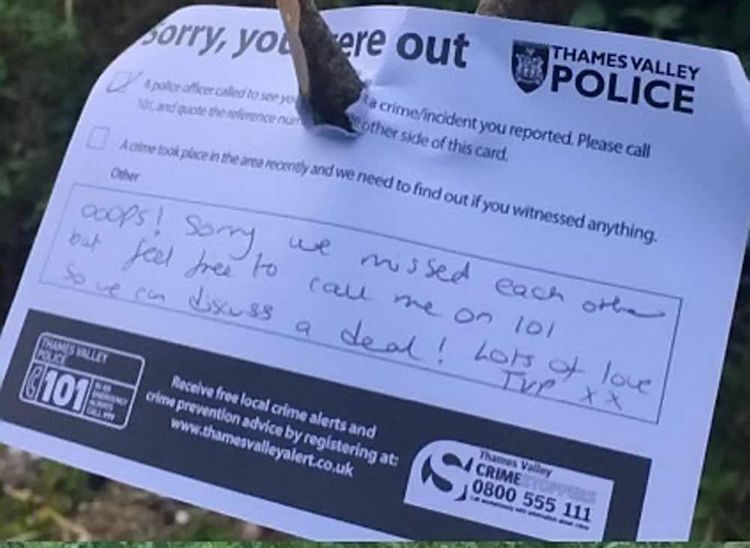 Sorry, you were out
THAMES VALLEY
POLICE
A police officer called to see you a crime/incident you reported. Please call
101, and quote the reference num other side of this card.
A crime took place in the area recently and we need to find out if you witnessed anything.
Other
OOOPS! Sorry we missed each other
but feel free to call me on 101
so we can discuss a deal! Lots of love
TVP xx
THAMES VALLEY
POLICE
101
IN AN
EMERGENCY
ALWAYS
CALL 999
Receive free local crime alerts and
crime prevention advice by registering at:
www.thamesvalleyalert.co.uk
Thames Valley
CRIMESTOPPERS
0800 555 111